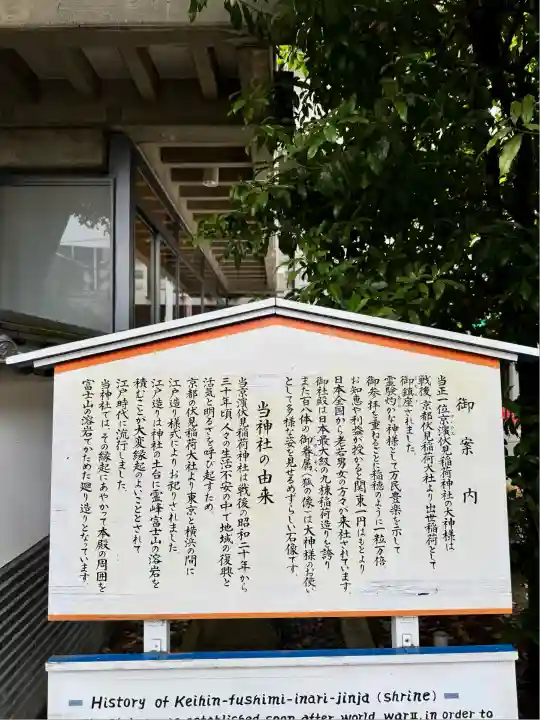 御案内
当正一位京濱伏見稲荷神社の大神様は
戦後、京都伏見稲荷大社より出世稲荷として
御鎮座されました。
霊験灼かな神様として万民豊楽を示して
御参拝を重ねるごとに稲穂のように一粒万倍
お知恵や利益が授かると関東一円はもとより
日本全国から老若男女の方々が来社されています。
御社殿は日本最大級の九棟稲荷造りを誇り
また百八体の御眷属（狐の像）は大神様のお使い
として多様な姿を見せるめずらしい石像です。
当神社の由来
当京濱伏見稲荷神社は戦後の昭和二十年から
三十年頃人々の生活不安の中で地域の復興と
活気と明るさを呼び起すため、
京都の伏見稲荷大社より東京と横浜の間に
江戸造り様式によりお祀りされました。
江戸造りは神社の土台に霊峰富士山の溶岩を
積むことが大変縁起のよいこととされて
江戸時代に流行しました。
当神社では、その縁起にあやかって本殿の周囲を
富士山の溶岩でかためた廻り造りとなっています。
History of Keihin-fushimi-inari-jinja (shrine)
established soon after world war II, in order to